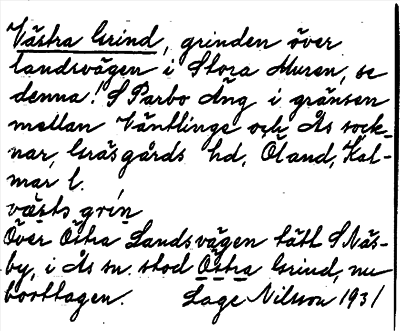 Västra Grind, grinden över
landsvägen i Stora Muren, se
denna! S Parbo Äng i gränsen
mellan Ventlinge och Ås sock-
nar, Gräsgårds hd, Öland, Kal-
mar l.
västs grín
Över Östra Landsvägen tätt S Näs-
by, i Ås sn stod Östra Grind, nu
borttagen. Lage Nilsson 1931